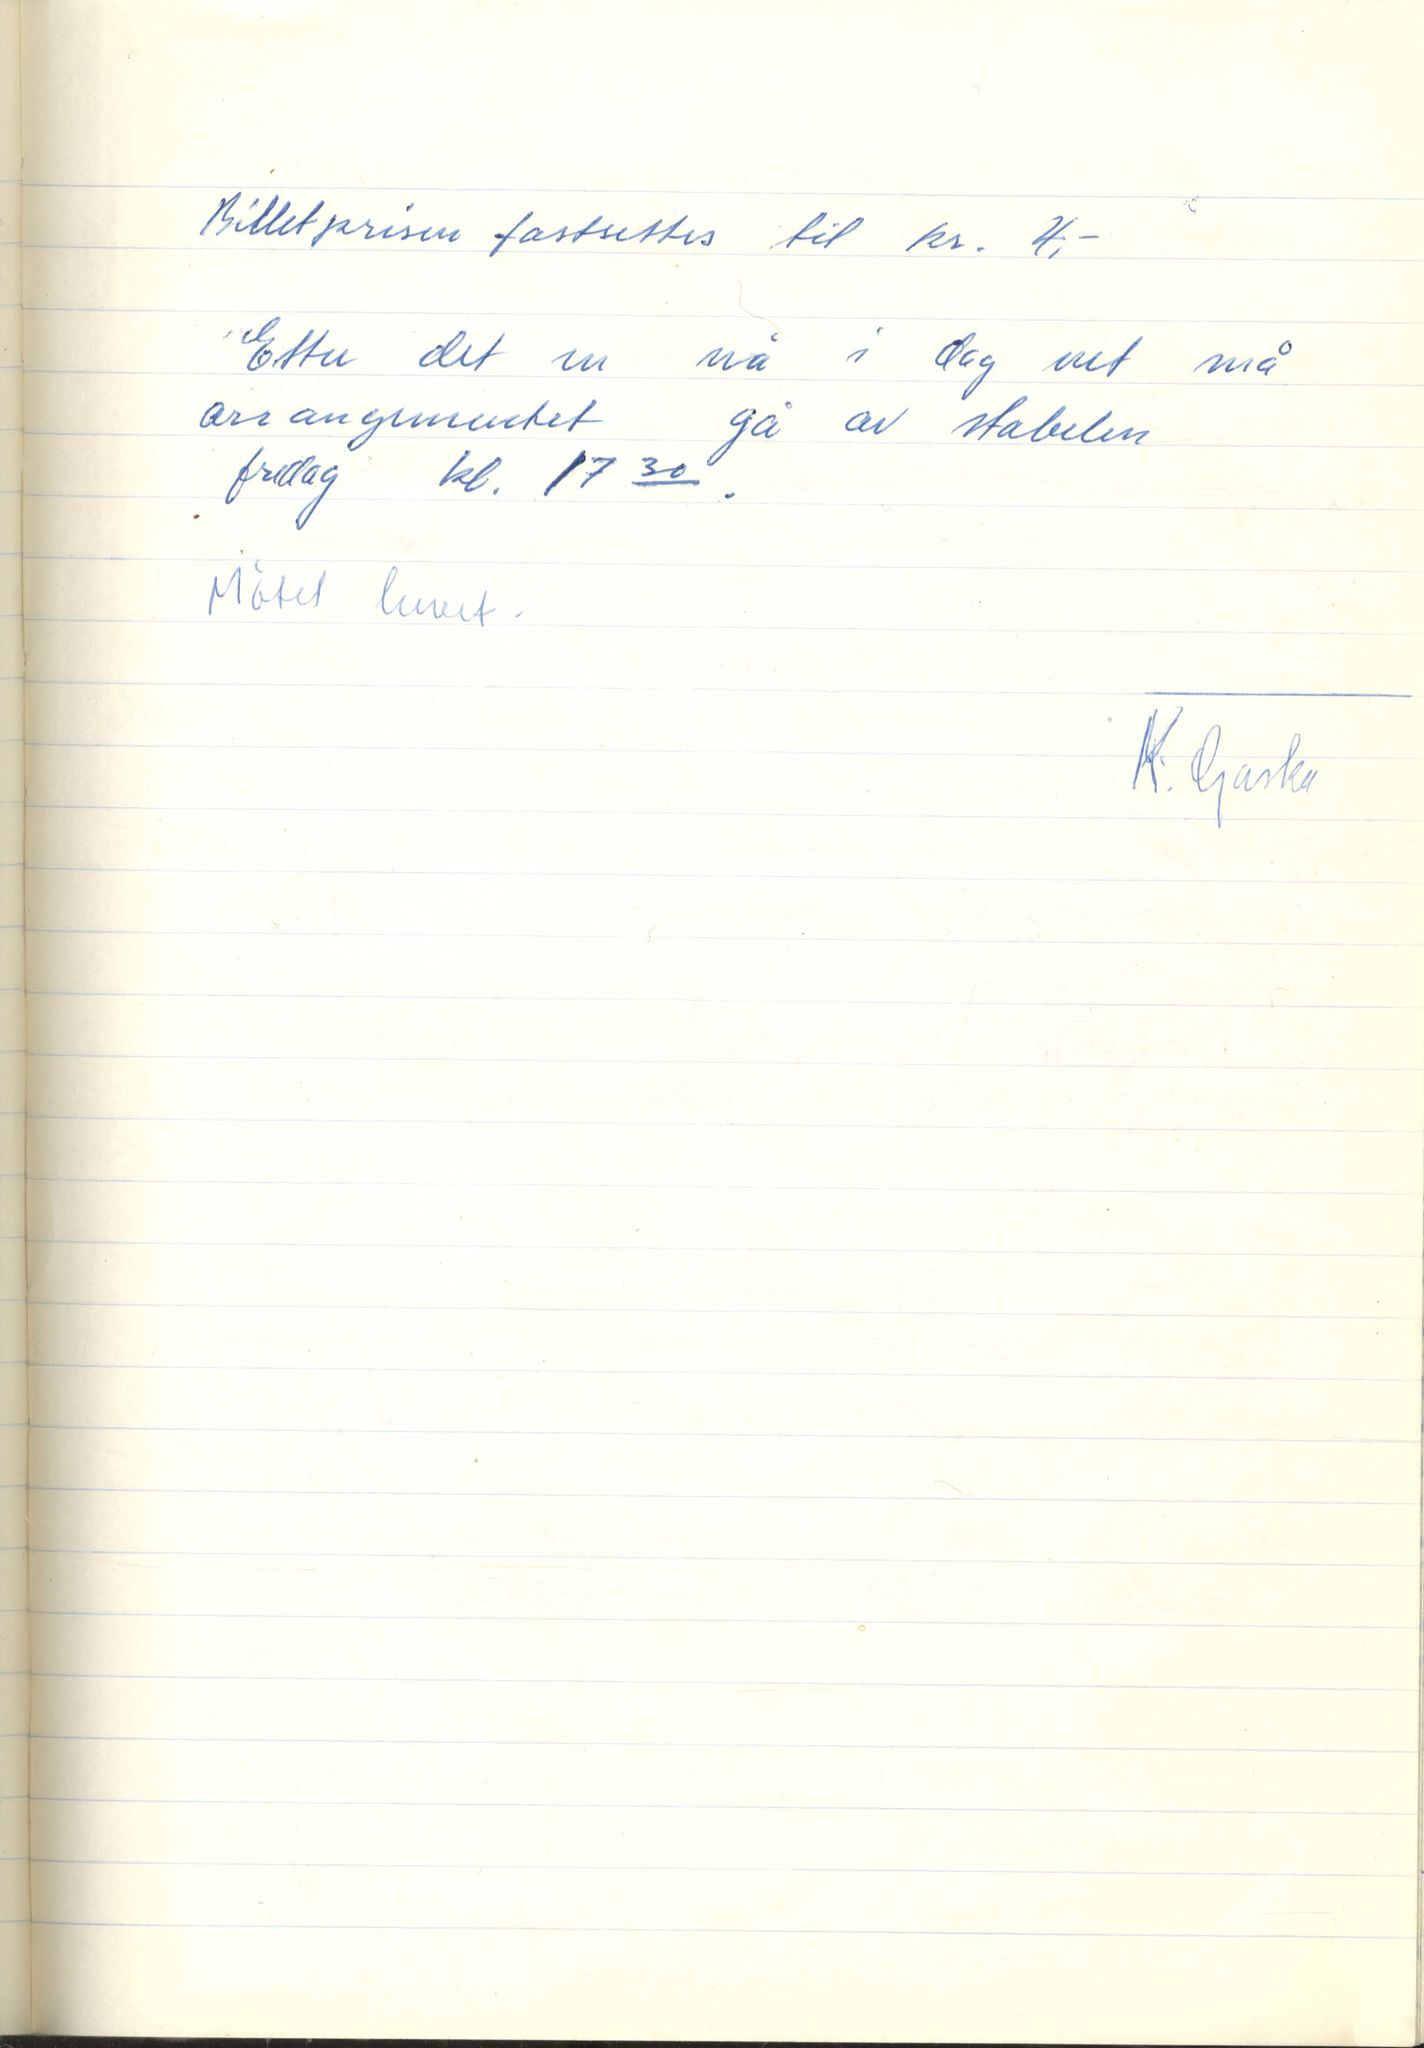 Billetprisen fastsettes til kr. 4,-
Etter det en nå i dag vet må
arrangementet gå av stabelen
fredag kl. 17 30.
Møtet hevet.
K. Gaska